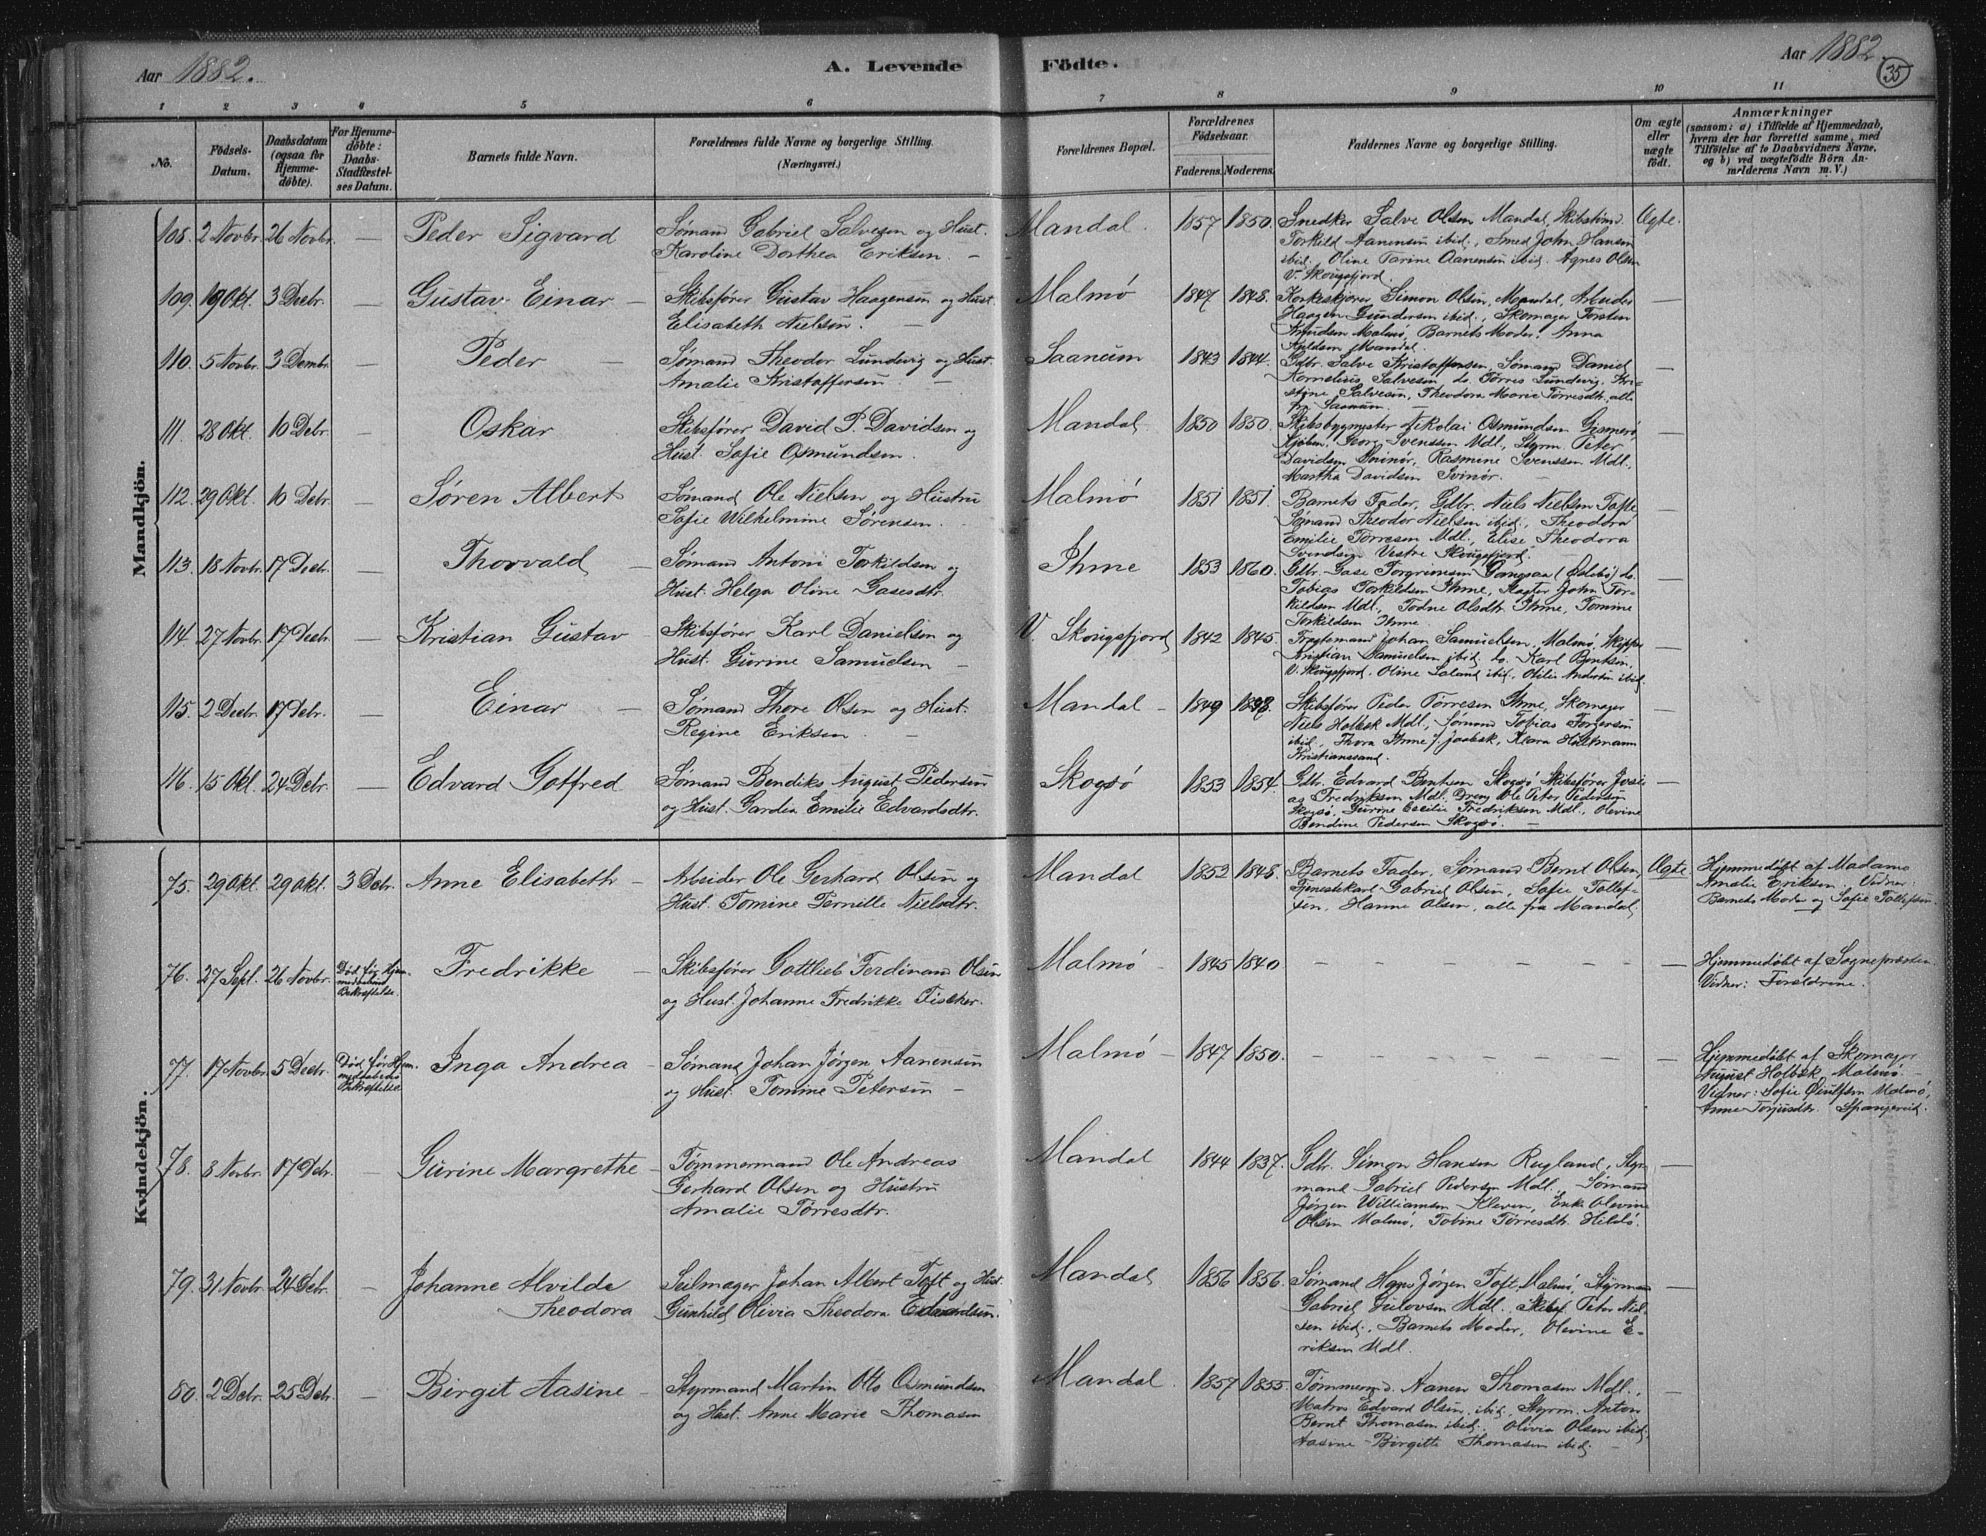 Aar 1882.
A. Levende Födte.
Aar 1882.
35
1 2 3 4 5 6 7 8 9 10 11
No.
Födsels-Datum.
Daabsdatum (ogsaa for Hjemmedöbte).
For Hjemmedöbte: Daabs-Stadfæstelses Datum.
Barnets fulde Navn.
Forældrenes fulde Navne og borgerlige Stilling. (Næringsvei.)
Forældrenes Bopæl.
Forældrenes Födselsaar.
Faderens. Moderens.
Faddernes Navne og borgerlige Stilling.
Om ægte eller uægte födt.
Anmærkninger
(saasom: a) i Tilfælde af Hjemmedaab, hvem der har forrettet samme, med Tilföielse af to Daabsvidners Navne, og b) ved uægtefödte Börn Anmelderens Navn m. V.)
Mandkjön.
108. 2 Novbr. 26 Novbr. — Peder Sigvard
Sømand Gabriel Salvesen og Hust.
Karoline Dorthea Eriksen. —
Mandal. 1857 1850.
Snedker Salve Olsen Mandal, Skibstømd.
Torkild Aanensen ibid., Smed John Hansen
ibid. Oline Tarine Aanensen ibid. Agnes Olsen
V. Skougsfjord.
Ægte.
109. 19 Okt. 3 Decbr. — Gustav Einar —
Skibsfører Gustav Haagensen og Hust.
Elisabeth Nielsen. —
Malmø 1847 1848.
Korkeskjører Simon Olsen, Mandal, Arbeider
Haagen Gundersen ibid., Skomager Torsten
Knudsen Malmø, Barnets Moder, Anna
Kjeldsen Mandal.
—
110. 5 Novbr. 3 Decmbr. — Peder —
Sømand Theodor Lundevig og Hust.
Amalie Kristoffersen. —
Saanum 1843 1844.
Gdbr. Salve Kristoffersen, Sømand Daniel
Kornelius Salvesen, do. Tørres Lundevig, Kri-
stine Salvesen, Theodora Marie Tørresdtr. alle
fra Saanum. —
—
111. 28 Okt. 10 Debr. — Oskar
Skibsfører David P. Davidsen og
Hust. Sofie Osmundsen.
Mandal 1850 1850.
Skibsbygmester Nikolai Osmundsen Gismerø,
Kjøbm. Georg Svenssen Mdl., Styrm. Peter
Davidsen Svinør, Rasmine Svenssen Mdl.,
Martha Davidsen Svinør. —
—
112. 29 Okt. 10 Debr. — Søren Albert
Sømand Ole Nielsen og Hustru
Sofie Wilhelmine Sørensen.
Malmø 1851 1851.
Barnets Fader, Gdbr. Niels Nielsen Tofte
Sømand Theodor Nielsen ibid., Theodora
Emilie Tørresen Mdl., Elise Theodora
Svendsen Vestre Skougsfjord.
—
113. 18 Novbr. 17 Decbr. — Thorvald —
Sømand Antoni Torkildsen og
Hust. Helga Oline Gasesdtr.
Ihme 1853 1860.
Gdbr. Gase Torgrimsen (Øslebø) do.
Tobias Torkildsen Ihme, John Tor-
kildsen Mdl., Todne Olsdtr. Ihme, Tomine
Torkildsen Ihme.
—
114. 27 Novbr. 17 Decbr. — Kristian Gustav —
Skibsfører Karl Danielsen og
Hust. Gurine Samuelsen —
V. Skougsfjord 1842 1845.
Fragtemand Johan Samuelsen, Malmø, Skipper
Kristian Samuelsen ibid., do. Karl Bentsen
V. Skougsfjord, Oline Laland ibid., Otilie Andersen ibid.
—
115. 2 Decbr. 17 Debr. — Einar —
Sømand Thore Olsen og Hust.
Regine Eriksen. —
Mandal — 1849 1848.
Skibsfører Peder Tørresen Ihme, Skomager
Niels Holbæk Mdl., Sømand Tobias Torgersen
ibid., Thora Ihme f. Jaabæk, Klara Holtemann
Kristianssand.
—
116. 15 Okt. 24 Debr. — Edvard Gotfred
Sømand Bendiks August Pedersen
og Hust. Gardea Emilie Edvardsdtr.
Skogsø 1853 1854.
Gdbr. Edvard Bentsen Skogsø, Skibsfører Josi-
as Fredriksen Mdl. Dreng Ole Peter Pedersen
Skogsø, Gurine Cecilie Fredriksen Mdl., Olevine
Bendine Pedersen Skogsø. —
—
Kvindekjön.
75. 29 Okt. 29 Okt. 3 Debr. Anne Elisabeth —
Arbeider Ole Gerhard Olsen og
Hust. Tomine Pernille Nielsdtr.
Mandal 1852 1848.
Barnets Fader, Sømand Bernt Olsen,
Tjenestekarl Gabriel Olsen, Sofie Tollef-
sen, Hanne Olsen, alle fra Mandal.
Ægte
Hjemmedøbt af Madame
Amalie Eriksen. Vidner:
Barnets Moder og Sofie Tollefsen.
76. 27 Sept. 26 Novbr.
Død før Hjem-
medaabens
Bekræftelse.
Fredrikke —
Skibsfører Gottlieb Ferdinand Olsen
og Hust. Johanne Fredrikke Fischer.
Malmø — 1845 1840
— — — — — — —
Hjemmedøbt af Sognepræsten.
Vidner: Forældrene.
77. 17 Novbr. 5 Decbr.
Død før Hjem-
medaabens
Bekræftelse
Inga Andrea —
Sømand Johan Jørgen Aanensen
og Hust. Tomine Petersen —
Malmø — 1847 1850.
— — — — — — —
Hjemmedøbt af Skomager
August Holbæk, Malmø. —
Vidner: Sofie Malmø,
Anne Torjusdtr. Spangereid.
78. 8 Novbr. 17 Debr. — Gurine Margrethe —
Tømmermand Ole Andreas
Gerhard Olsen og Hustru
Amalie Tørresdtr.
Mandal 1844 1837.
Gdbr. Simon Hansen Rugland, Styr-
mand Gabriel Pedersen Mdl. Sømand
Jørgen Williamsen Kleven, Enke Olevine
Olsen Malmø, Tobine Tørresdtr. Hilslø.
—
79. 31 Novbr. 24 Debr. — Johanne Alvilde
Theodora
Seilmager Johan Albert Toft og Hust.
Gunhild Olivia Theodora Edvardsen.
Mandal 1856 1856.
Sømand Hans Jørgen Toft, Malmø, Styrman
Gabriel Gulovsen Mdl. Skibsf. Peter Niel-
sen ibid., Barnets Moder, Olevine E-
riksen Mdl.
—
80. 2 Debr. 25 Debr. — Birgit Aasine —
Styrmand Martin Otto Osmundsen
og Hust. Anne Marie Thomasen
Mandal. 1857 1855.
Tømmermd. Aanen Thomasen Mdl.,
Matros Edvard Olsen ibid., Styrm. Anton
Bernt Thomasen ibid., Olivia Olsen ibid.
Aasine Birgitte Thomasen ibid. —
—